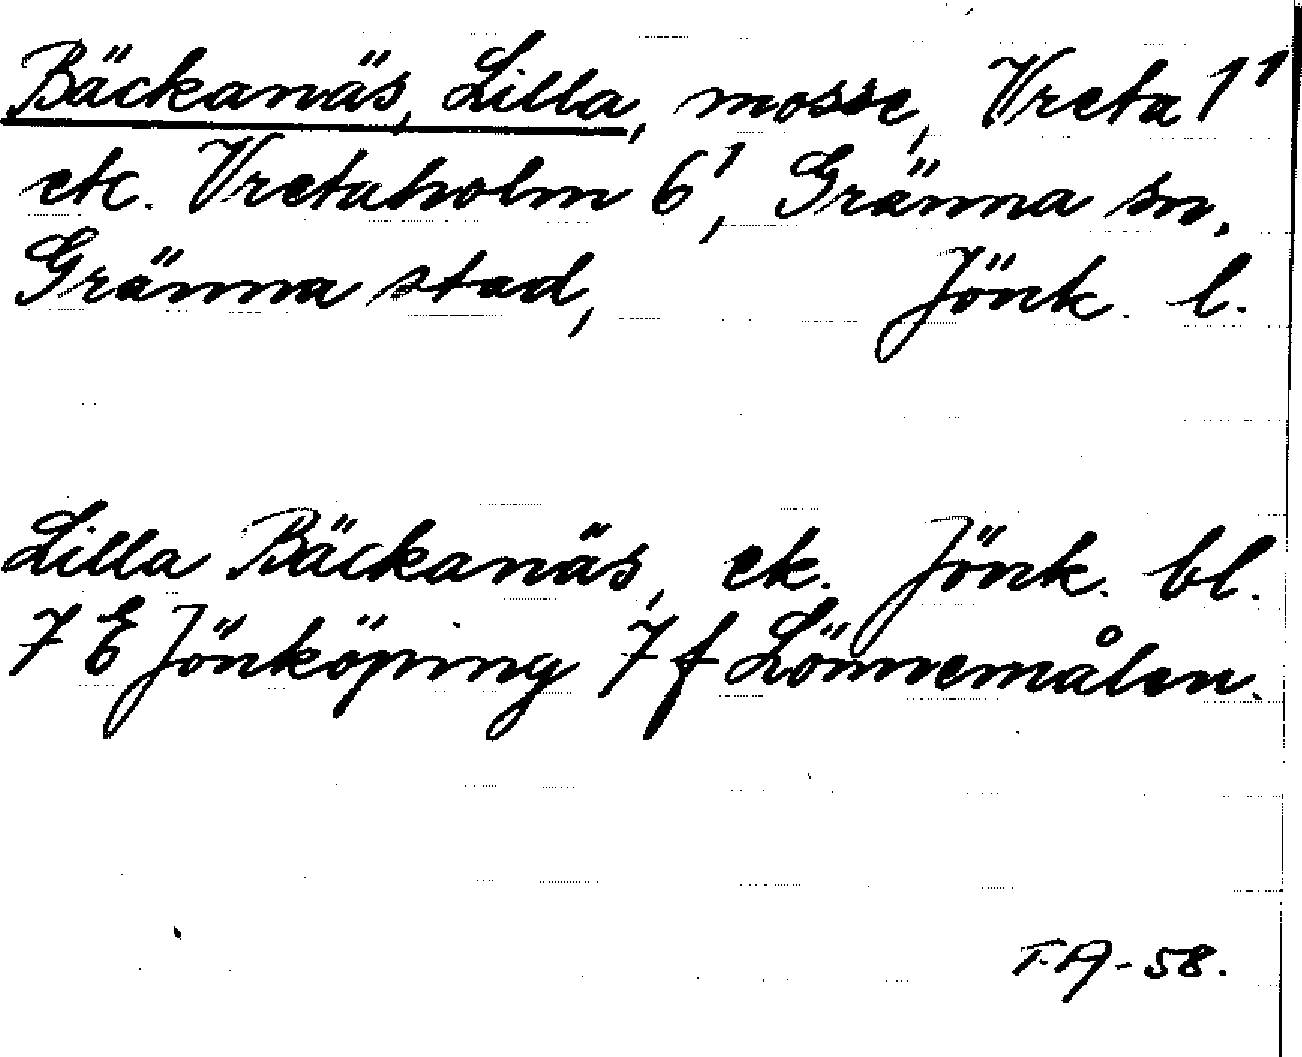 Bäckanäs, Lilla, mosse, Vreta 1¹
ek. Vretaholm 6¹, Gränna sn,
Gränna stad, Jönk. l.
Lilla Bäckanäs, ek. Jönk. bl.
7 E Jönköping 7 f Lönnemålen.
T.A-58.